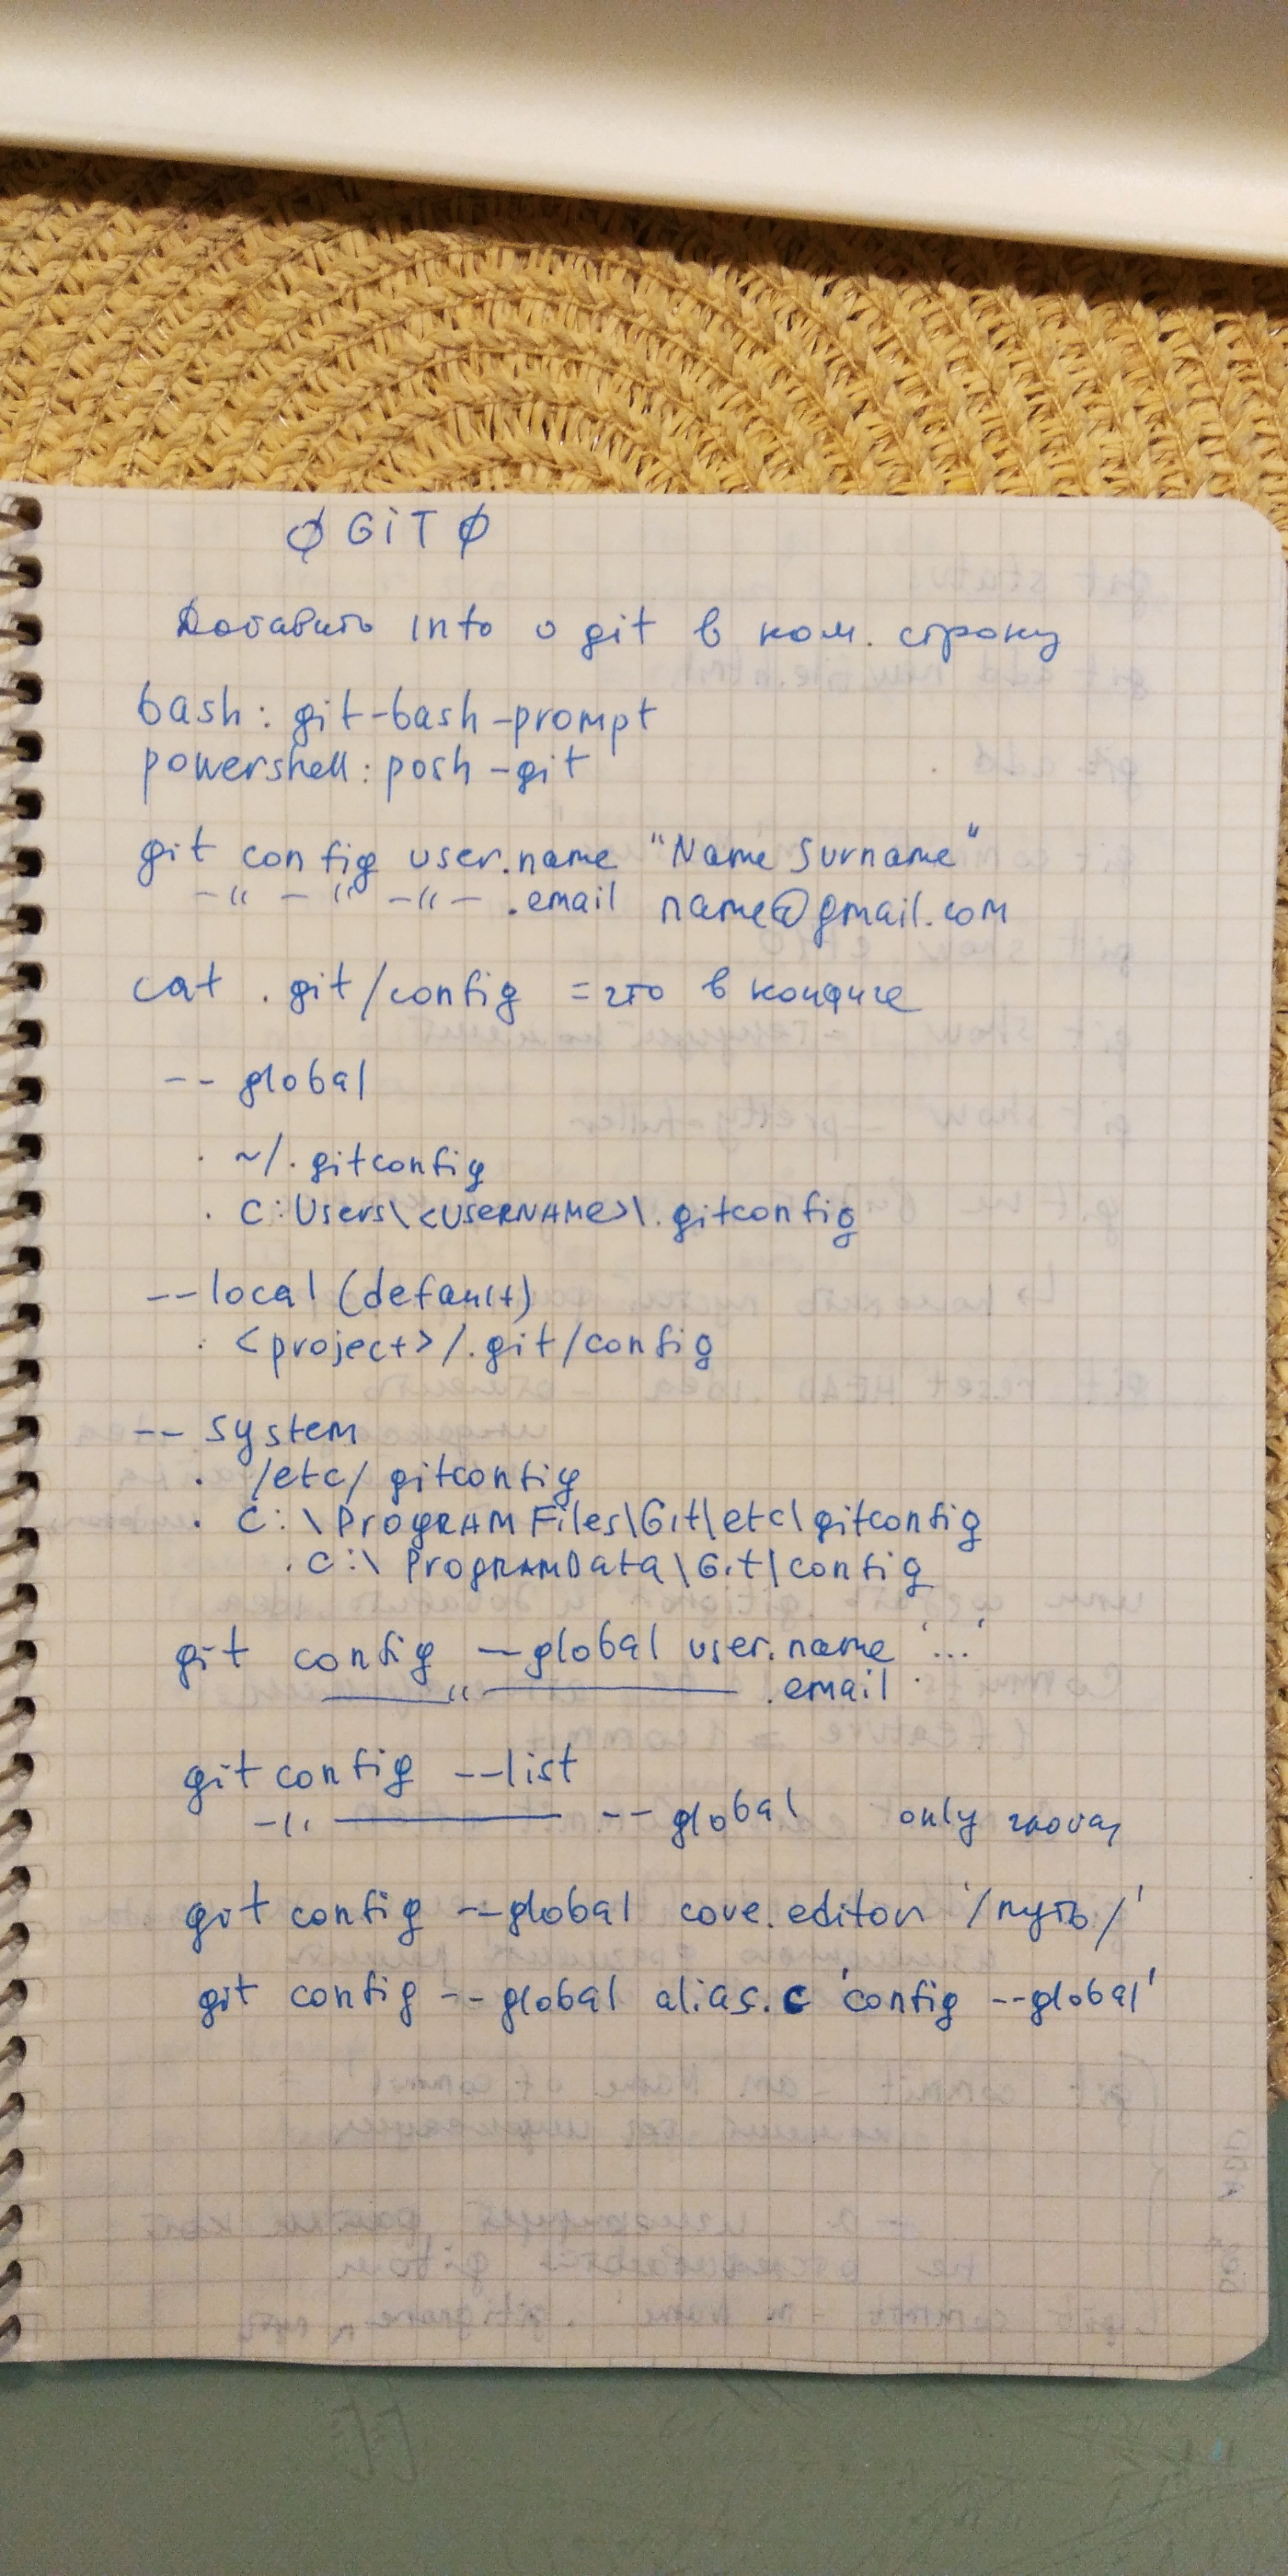 ∅ GiT ∅
Добавить info о git в ком. строку
bash: git-bash-prompt
powershell: posh-git
git config user.name "Name Surname"
-"- -"- -"- .email name@gmail.com
cat .git/config = что в конфиге
-- global
· ~/.gitconfig
· C:Users\<USeRNAMe>\.gitconfig
-- local (default)
· <project>/.git/config
-- system
· /etc/gitconfig
· C:\PrOgRAM Files\Git\etc\gitconfig
· C:\PrOgRAMData\Git\config
git config --global user.name '...'
—"— .email
git config --list
-"— --global only глобал
git config --global core.editor '/путь/'
git config --global alias.c 'config --global'